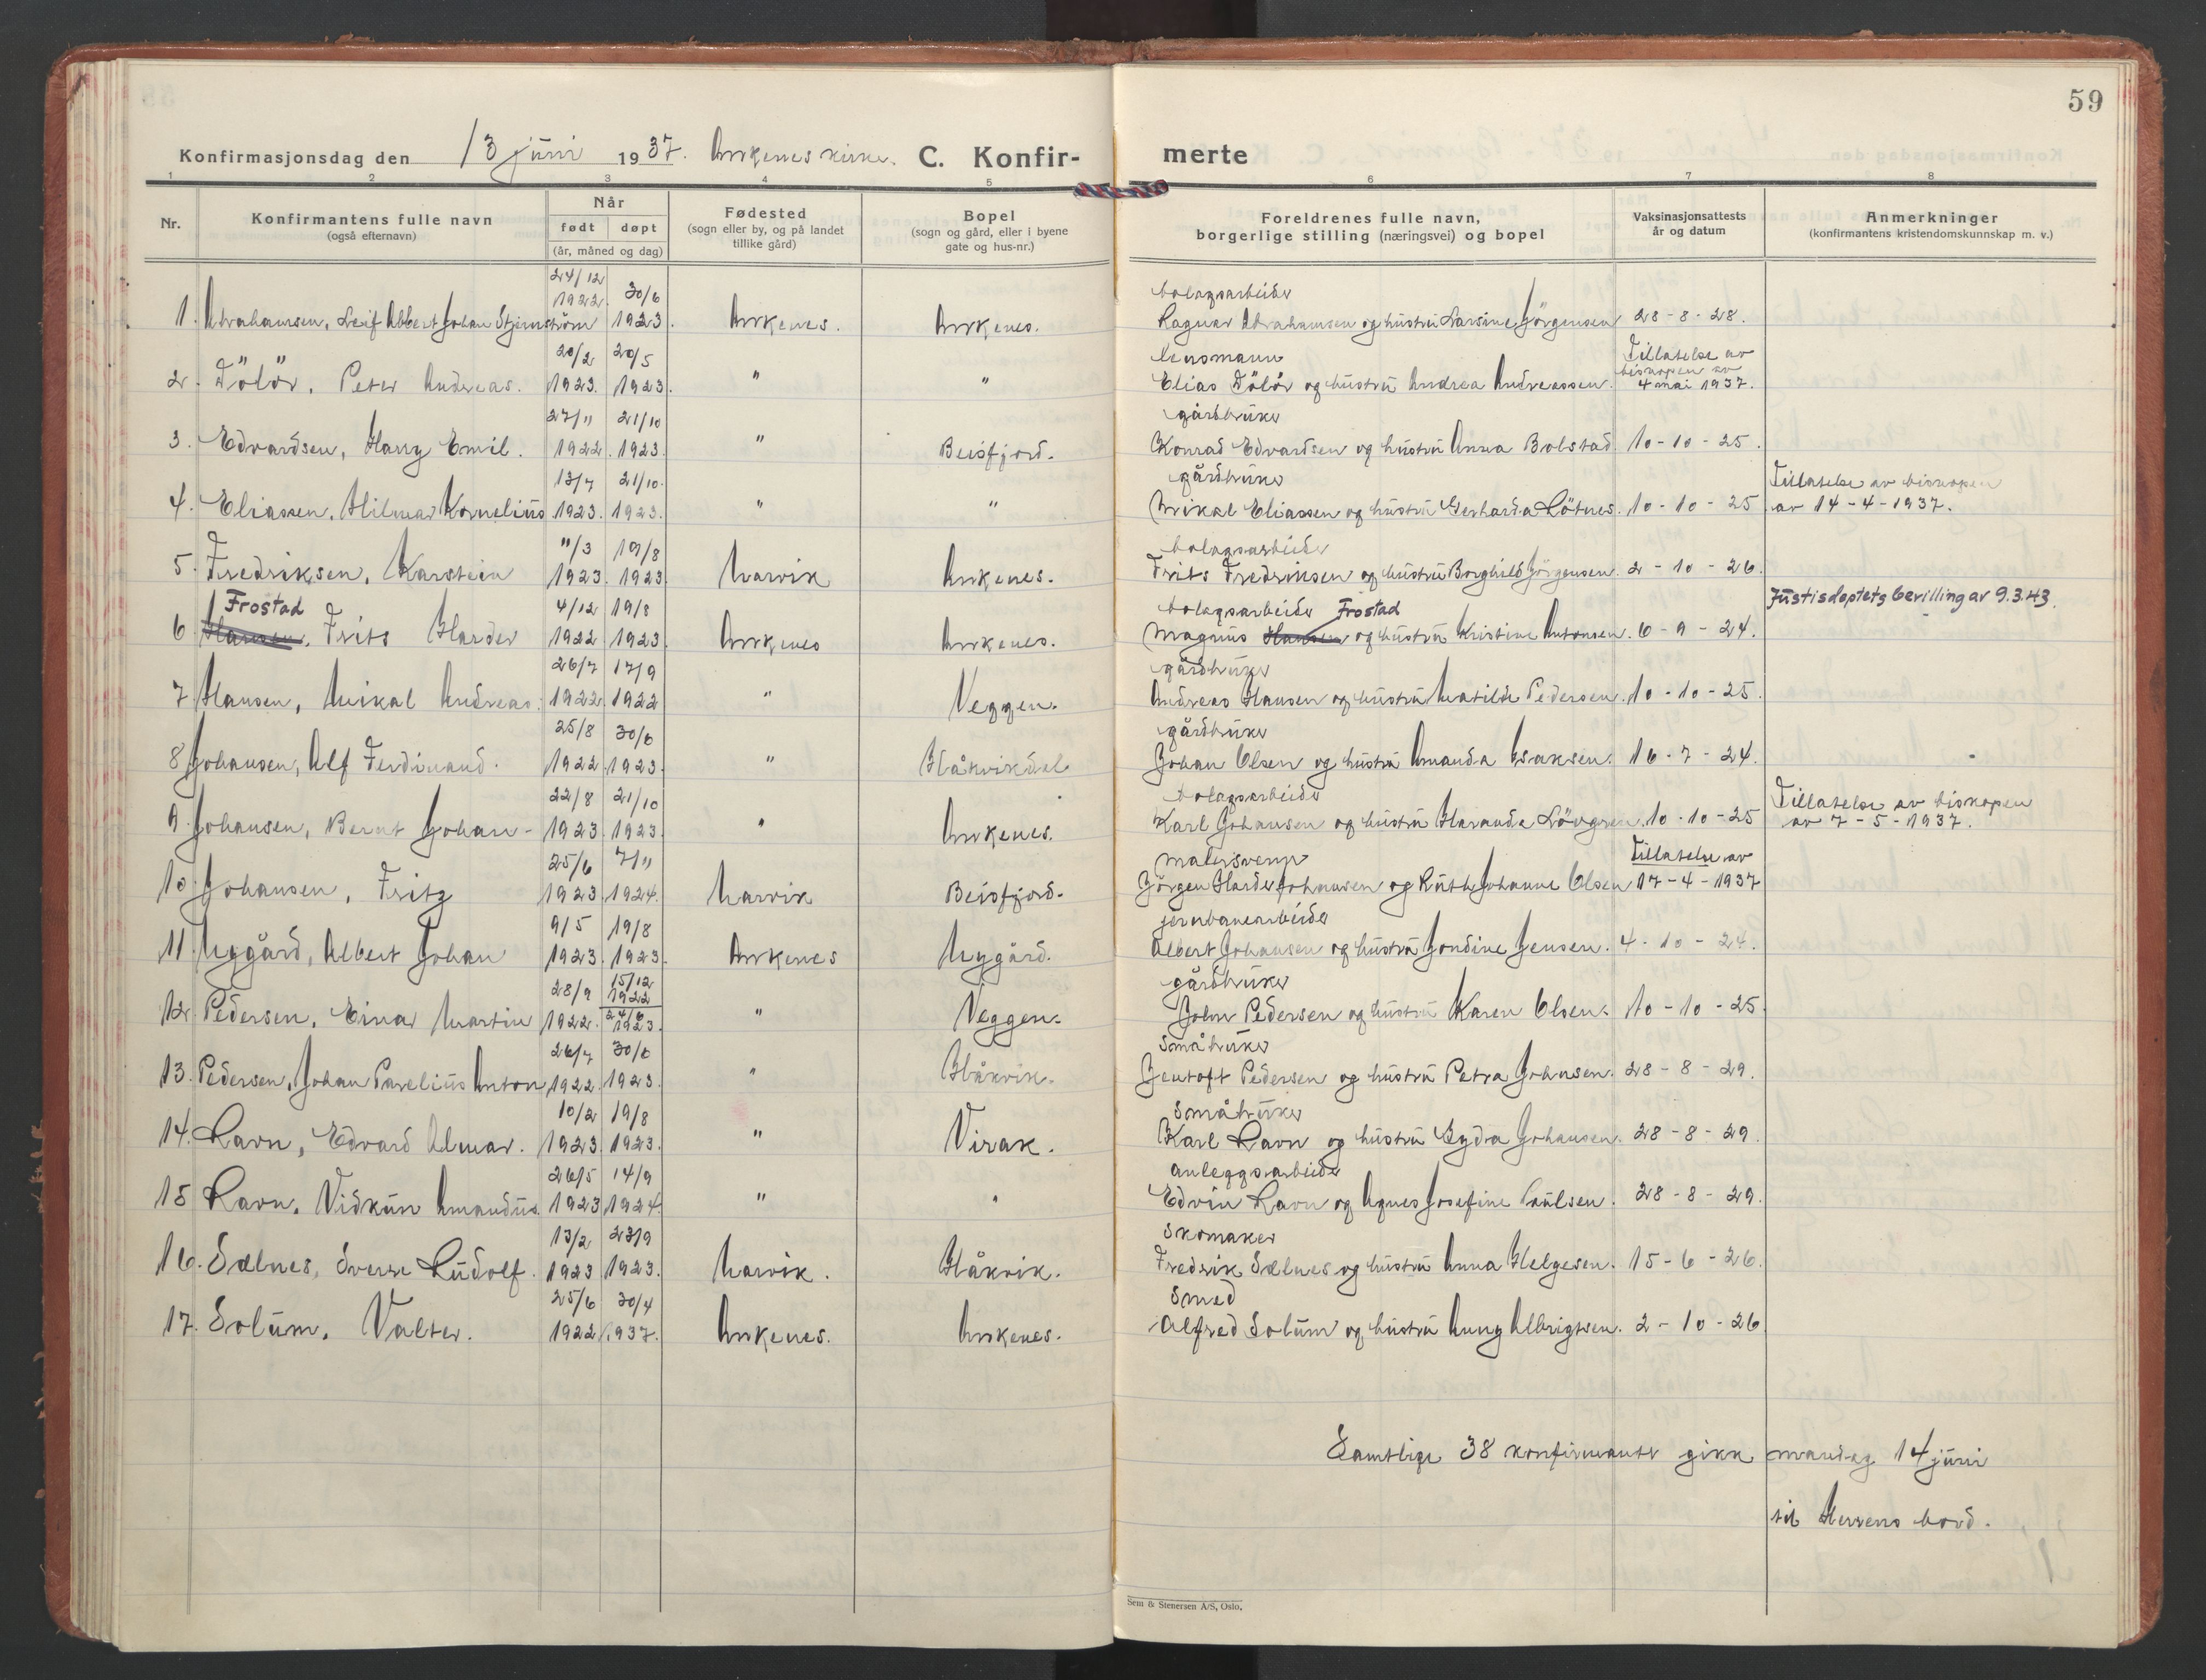 59
Konfirmasjonsdag den 13 juni 1937. Ankenes kirke. C. Konfir-merte
1 2 3 4 5 6 7 8
Nr.
Konfirmantens fulle navn
(også efternavn)
Når
født døpt
(år, måned og dag)
Fødested
(sogn eller by, og på landet
tillike gård)
Bopel
(sogn og gård, eller i byene
gate og hus-nr.)
Foreldrenes fulle navn,
borgerlige stilling (næringsvei) og bopel
Vaksinasjonsattests
år og datum
Anmerkninger
(konfirmantens kristendomskunnskap m. v.)
24/12 30/6 bolagsarbeider
1. Abrahamsen, Leif Albert Johan Stjernström 1922. 1923. Ankenes. Ankenes. Ragnar Abrahamsen og hustru Larsine Jörgensen 28-8-28.
20/2 20/5 lensmann Tillatelse av
2. Dölör, Peter Andreas. 1923. 1923. " " Elias Dölör og hustru Andrea Andreassen. biskopen av 4 mai 1937.
27/11 21/10 gårdbruker
3. Edvardsen, Harry Emil. 1922. 1923. " Beisfjord. Konrad Edvardsen og hustru Anna Bolstad. 10-10-25.
13/7 21/10 gårdbruker Tillatelse av biskopen
4. Eliassen, Hilmar Kornelius 1923. 1923. " " Mikal Eliassen og hustru Gerharda Lötnes. 10-10-25 av 14-4-1937.
11/3 19/8 bolagsarbeider
5. Fredriksen, Karstein 1923. 1923 Narvik Ankenes. Frits Fredriksen og hustru Borghild Jörgensen. 2-10-26.
Frostad 4/12 19/8 bolagsarbeider Frostad Justisdeptets bevilling av 9.3.43.
6 Hansen, Frits Harder 1922 1923. Ankenes Ankenes. Magnus Hansen og hustru Kristine Antonsen. 6-9-24.
26/7 17/9 gårdbruker
7 Hansen, Mikal Andreas. 1922. 1922 " Veggen. Andreas Hansen og hustru Matilde Pedersen. 10-10-25.
25/8 30/6 gårdbruker
8 Johansen, Alf Ferdinand. 1922. 1923. " Håkvikdal Johan Olsen og hustru Amanda Isaksen. 16-7-24.
22/8 21/10 bolagsarbeider Tillatelse av biskopen
9. Johansen, Bernt Johan- 1923. 1923. " Ankenes. Karl Johansen og hustru Haranda Lövgren. 10-10-25 av 7-5-1937.
25/6 7/11 malersvenn Tillatelse av
10. Johansen, Fritz 1923. 1924. Narvik Beisfjord. Jörgen Harder Johansen og Ruth Johanne Olsen 17-4-1937
9/5 19/8 jernbanearbeider
11. Nygård, Albert Johan 1923. 1923. Ankenes Nygård. Albert Johansen og hustru Jondine Jensen. 4-10-24.
28/9 15/12 1922 gårdbruker
12. Pedersen, Einar Martin 1922. 24/6 1923. " Veggen. John Pedersen og hustru Karen Olsen. 10-10-25.
26/7 30/6 småbruker
13. Pedersen, Johan Parelius Anton 1922. 1923. " Håkvik. Jentoft Pedersen og hustru Petra Johansen. 28-8-29.
10/2 19/8 småbruker
14. Ravn, Edvard Almar. 1923. 1923. " Virak. Karl Ravn og hustru Gydra Johansen. 28-8-29.
26/5 14/9 anleggsarbeider
15 Ravn, Vidkun Amandus. 1923 1924. " " Edvin Ravn og Agnes Josefine Paulsen. 28-8-29.
13/2 23/9 skomaker
16. Selnes, Sverre Rudolf. 1923 1923. Narvik. Håkvik. Fredrik Selnes og hustru Anna Helgesen. 15-6-26.
25/6 30/4 smed
17. Solum, Valter. 1922. 1937. Ankenes. Ankenes. Alfred Solum og hustru Anny Albrigtsen. 2-10-26
Samtlige 38 konfirmanter gikk mandag 14 juni
til Herrens bord.
Sem & Stenersen A/S, Oslo.